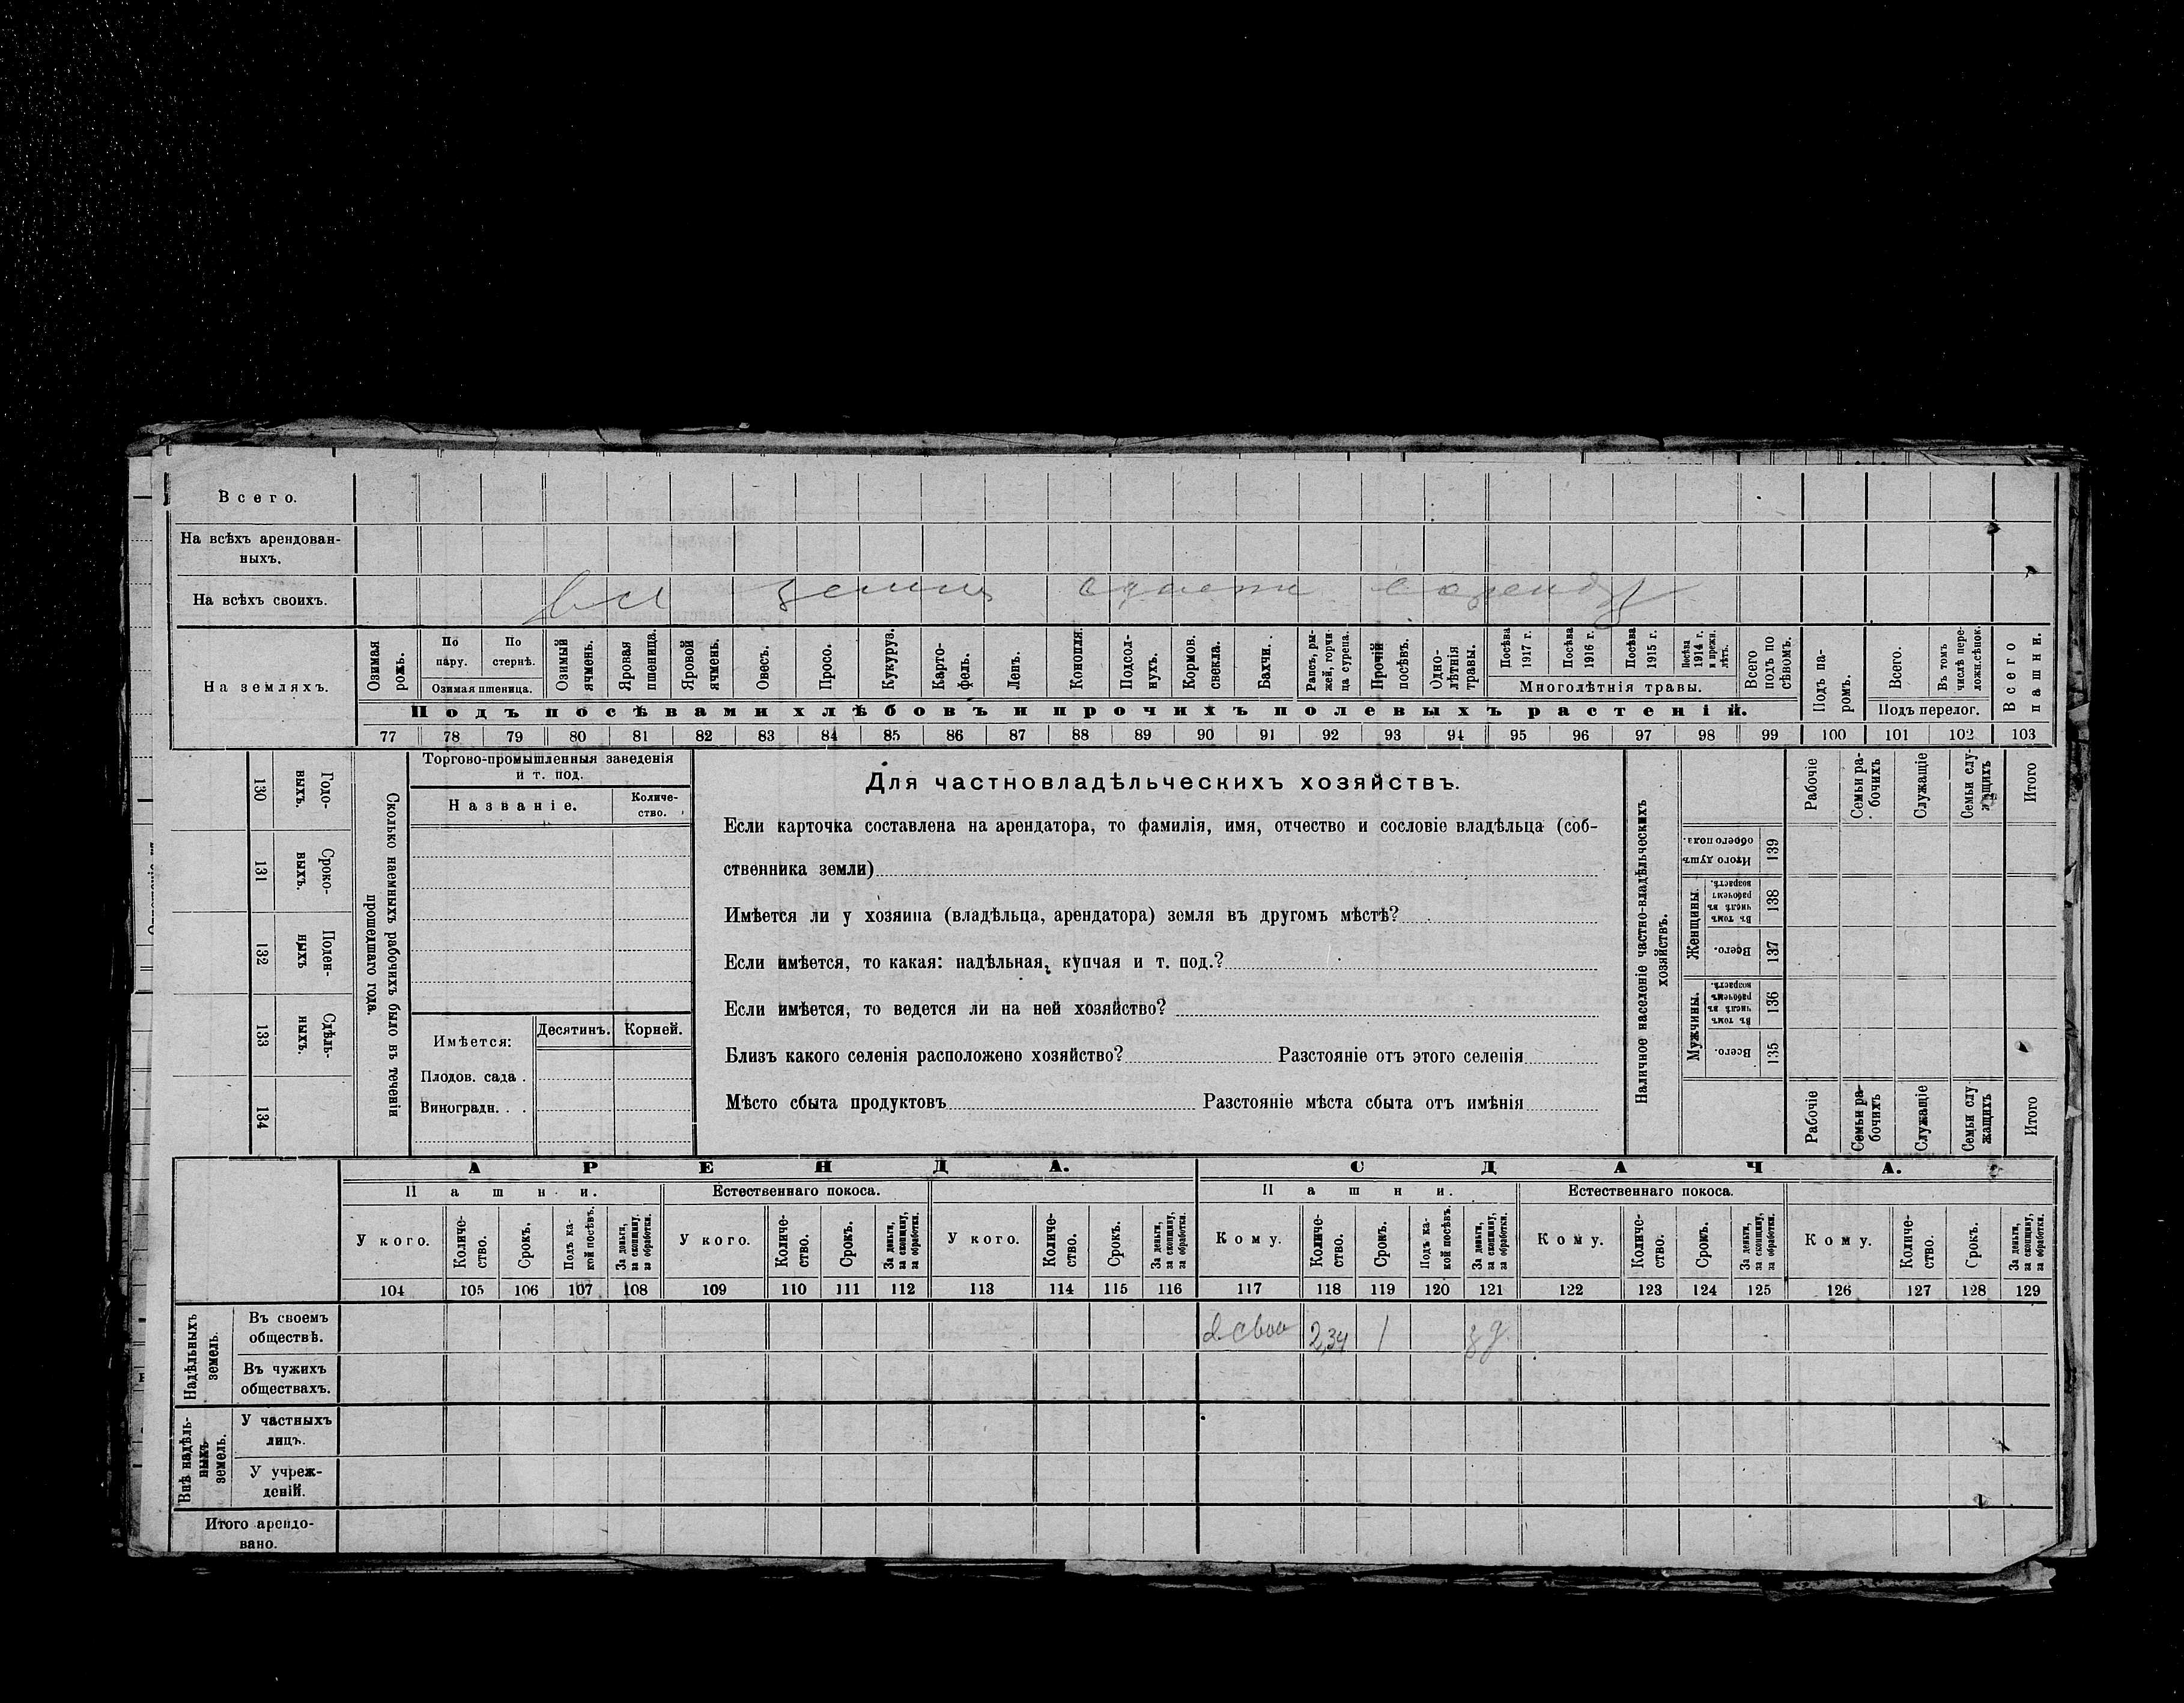 Всего.
На всѣхъ арендован-
ныхъ.
На всѣхъ своихъ.
Вся земля сдана в аренду
На земляхъ.
Озимая рожь.
По пару.
По стернѣ.
Озимая пшеница.
Озимый ячмень.
Яровая пшеница.
Яровой ячмень.
Овесъ.
Просо.
Кукуруз.
Карто-
фель.
Ленъ.
Конопля.
Подсол-
нухъ.
Кормов. свекла.
Бахчи.
Рапсъ, ры-
жей, горчи-
ца сурепа.
Прочій посѣвъ.
Одно-
лѣтнія травы.
Посѣва 1917 г.
Посѣва 1916 г.
Посѣва 1915 г.
Посѣва 1914 г. и прежн. лѣтъ.
Многолѣтнія травы.
Всего подъ по
сѣвомъ.
Подъ посѣвами хлѣбовъ и прочихъ полевыхъ растеній.
Подъ па-
ромъ.
Всего.
Въ томъ числѣ пере-
ложн. сѣнок.
Подъ перелог.
Всего пашни.
77 78 79 80 81 82 83 84 85 86 87 88 89 90 91 92 93 94 95 96 97 98 99 100 101 102 103
130
Годо-
выхъ.
131
Сроко-
выхъ.
132
Поден-
ныхъ
133
Сдѣль-
ныхъ.
134
Сколько наемныхъ рабочихъ было въ теченіи
прошедшаго года.
Торгово-промышленныя заведенія
и т. под.
Названіе.
Количе-
ство.
Имѣется:
Десятинъ.
Корней.
Плодов. сада .
Виноградн. . .
Для частновладѣльческихъ хозяйствъ.
Если карточка составлена на арендатора, то фамилія, имя, отчество и сословіе владѣльца (соб-
ственника земли)
Имѣется ли у хозяина (владѣльца, арендатора) земля въ другомъ мѣстѣ?
Если имѣется, то какая: надѣльная, купчая и т. под.?
Если имѣется, то ведется ли на ней хозяйство?
Близъ какого селенія расположено хозяйство? Разстояніе отъ этого селенія
Мѣсто сбыта продуктовъ Разстояніе мѣста сбыта отъ имѣнія
Наличное населеніе частно-владѣльческихъ
хозяйствъ.
Рабочіе
Семьи ра-
бочихъ
Служащіе
Семьи слу
жащихъ
Итого
Итого душъ обоего пола.
139
Женщины.
Въ томъ числѣ въ рабочемъ возрастѣ.
138
Всего.
137
Мужчины.
Въ томъ числѣ въ рабочемъ возрастѣ.
136
Всего.
135
Рабочіе
Семьи ра-
бочихъ
Служащіе
Семьи слу
жащихъ
Итого
АРЕНДА.
СДАЧА.
Пашни.
Естественнаго покоса.
Пашни.
Естественнаго покоса.
У кого.
Количе-
ство.
Срокъ.
Подъ ка-
кой посѣвъ.
За деньги, за скопщину, за обработки.
У кого.
Количе-
ство.
Срокъ.
За деньги, за скопщину, за обработки.
У кого.
Количе-
ство.
Срокъ.
За деньги, за скопщину, за обработки.
Кому.
Количе-
ство.
Срокъ.
Подъ ка-
кой посѣвъ.
За деньги, за скопщину, за обработки.
Кому.
Количе-
ство.
Срокъ.
За деньги, за скопщину, за обработки.
Кому.
Количе-
ство.
Срокъ.
За деньги, за скопщину, за обработки.
104 105 106 107 108 109 110 111 112 113 114 115 116 117 118 119 120 121 122 123 124 125 126 127 128 129
Надѣльныхъ
земель.
Въ своемъ
обществѣ.
2,34 1 з д.
Въ чужихъ
обществахъ.
Внѣ надѣль-
ныхъ
земель.
У частныхъ
лицъ.
У учреж-
деній.
Итого арендо-
вано.